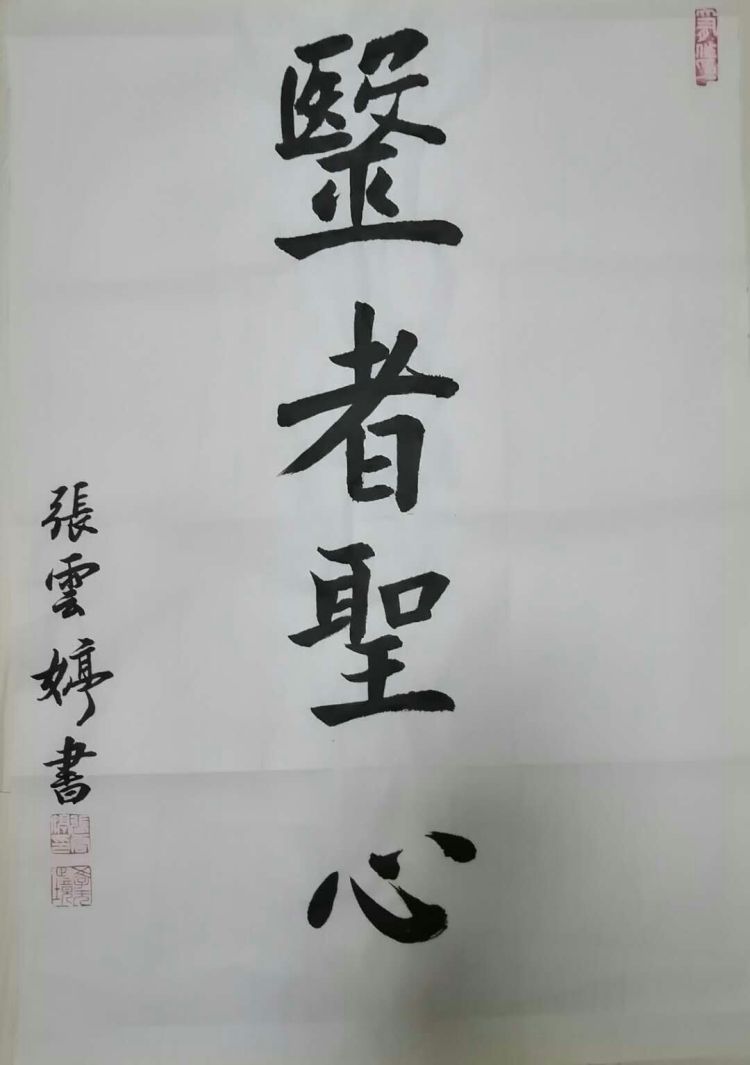 毉者聖心
張雲婷書